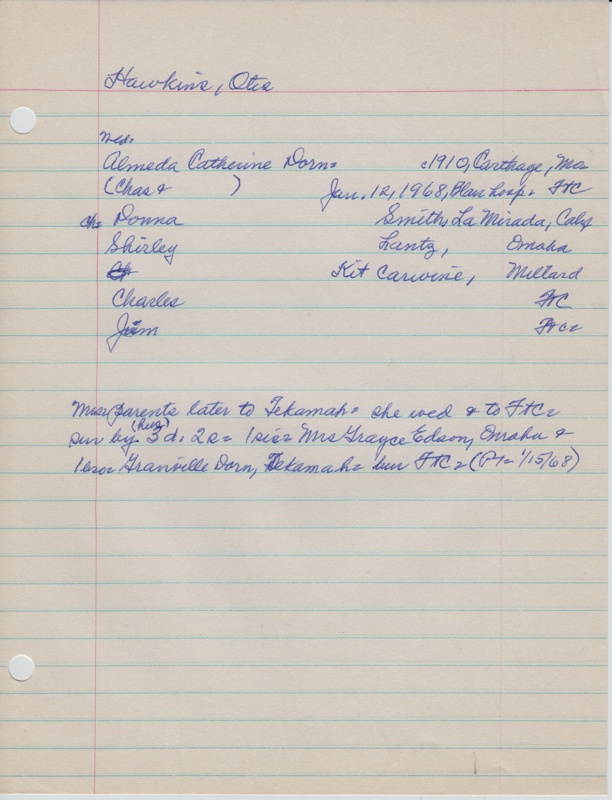 Hawkins, Otis
Wed:
Almeda Catherine Dorn= c1910, Carthage, Mo
(Chas & ) Jan. 12, 1968, Blair hosp= FtC
ch= Donna Smith, La Mirada, Calif
Shirley Lantz, Omaha
Kit Carwine, Millard
Charles FtC
Jim FtC=
Mrs= parents later to Tekamah= she wed & to FtC=
sur by (hus) 3 d, 2 s= 1 sis= Mrs Grayce Edson, Omaha &
1 bro= Granville Dorn, Tekamah= bur FtC= (PT= 1/15/68)